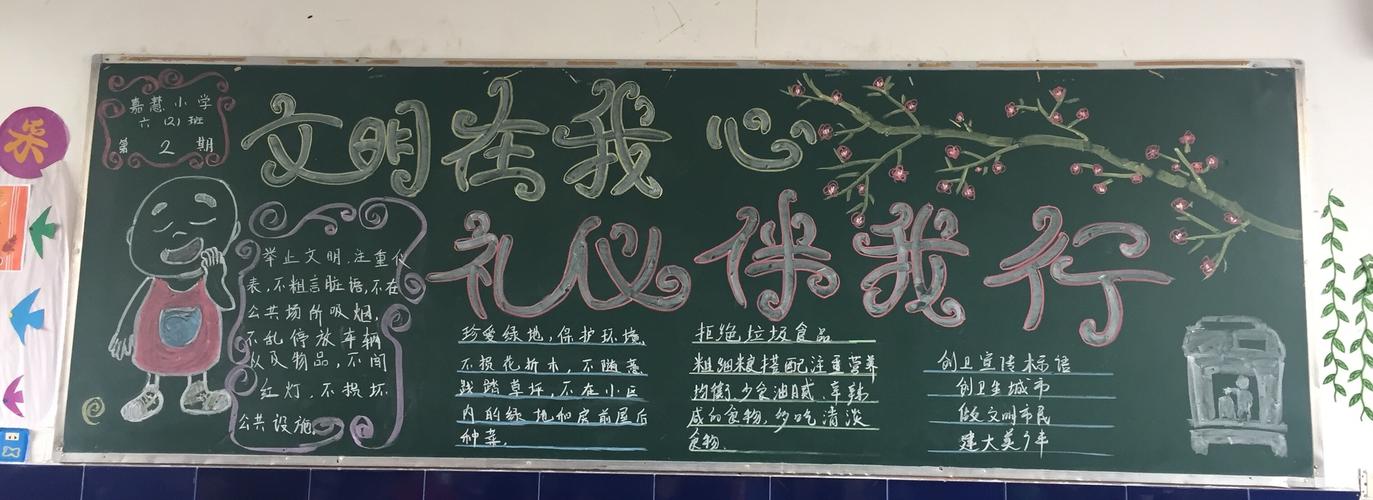 嘉慧小学
六(2)班
第2期
文明在我心
礼仪伴我行
举止文明,注重仪
表,不粗言脏语,不在
公共场所吸烟,
不乱停放车辆
以及物品,不闯
红灯,不损坏
公共设施。
珍爱绿地,保护环境,
不损花折木,不随意
践踏草坪,不在小区
内的绿地和房前屋后
种菜。
拒绝垃圾食品
粗细粮搭配注重营养
均衡,少食油腻、辛辣
咸的食物,多吃清淡
食物.
创卫宣传标语
创卫生城市
做文明市民
建大美丰